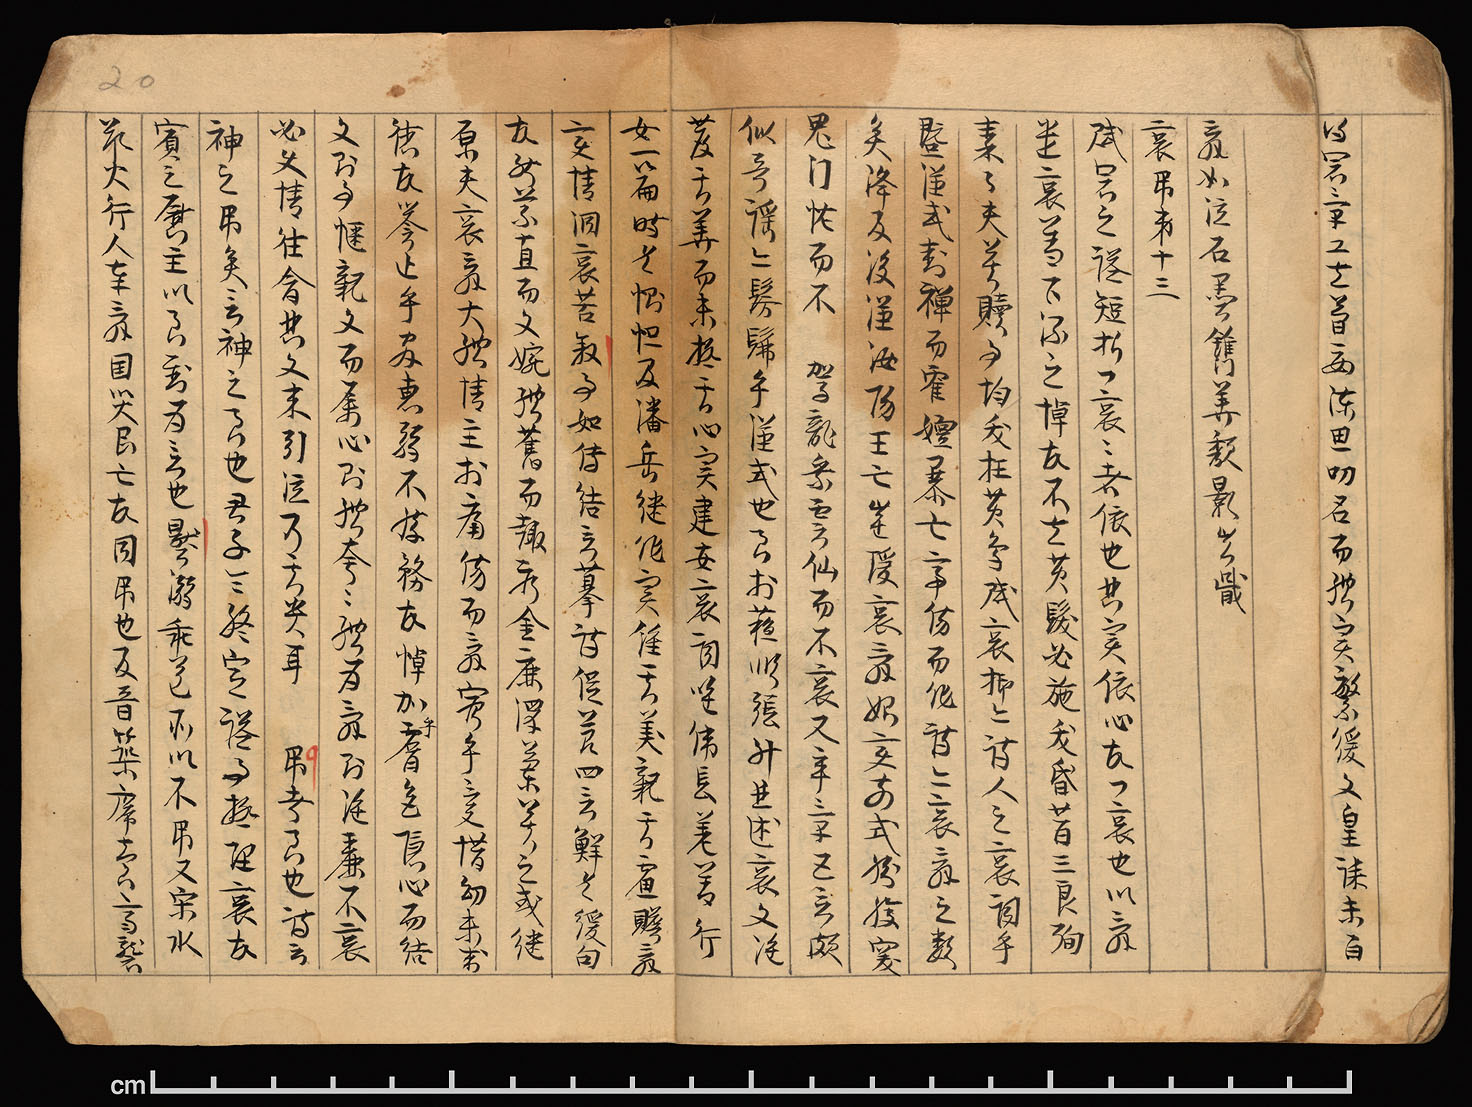 得憲章工在簡要陳思叨名而體實繁緩文皇誄末百
辭如泣石墨鐫華頹影豈戢
哀弔第十三
賦憲之謚短折曰哀哀者依也悲實依心故曰哀也以辭
遣哀蓋下流之悼故不在黃髮必施夭昏昔三良殉
秦百夫莫贖事均夭枉黃鳥賦哀抑亦詩人之哀詞乎
暨漢武封禪而霍嬗暴亡帝傷而作詩亦哀辭之類
矣降及後漢汝陽王亡崔瑗哀辭始變前式然履突
鬼門怪而不 駕龍乘雲仙而不哀又卒章五言頗
似哥謠亦髣髴乎漢武也至於蘇順張升並述哀文雖
發其華而未極其心實建安哀詞唯偉長差善行
女一篇時有惻怛及潘岳繼作實鍾其美觀其慮贍辭
變情洞哀苦敘事如傳結言摹詩促節四言鮮有緩句
故能義直而文婉體舊而趣新金鹿澤蘭莫之或繼
原夫哀辭大體情主於痛傷而辭窮乎愛惜幼未成
德故譽止乎察惠弱不勝務故悼加乎膚色隱心而結
文則事愜觀文而屬心則體奢奢體為辭則雖麗不哀
必使情往會悲文來引泣乃其貴耳 弔者至也詩云
神之弔矣言神之至也君子令終定謚事極理哀故
賓之慰主以至到為言也壓溺乖道所以不弔又宋水
鄭火行人奉辭國災民亡故同弔也及晉築虒臺齊襲
20
cm